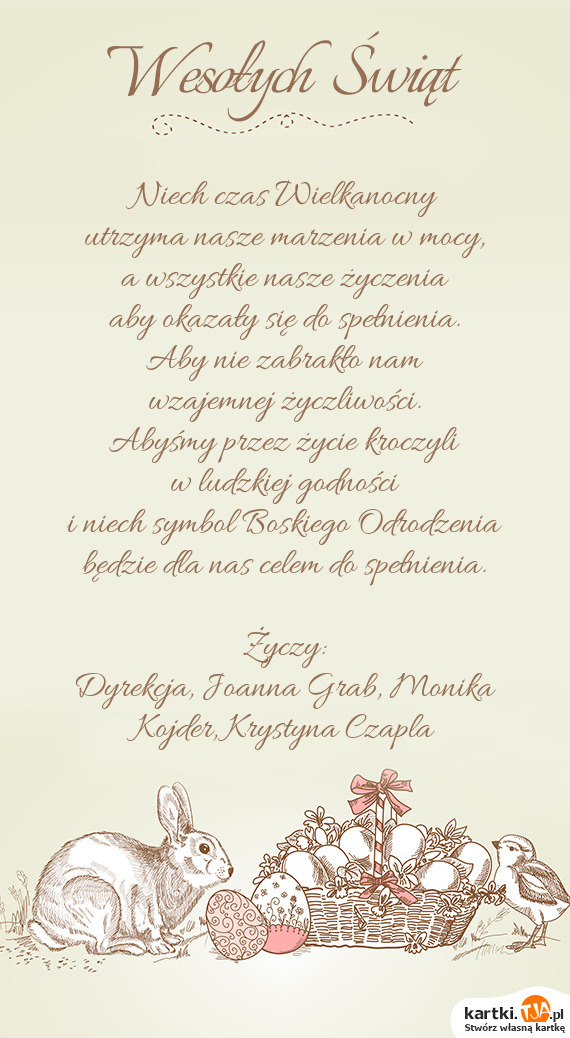 Wesołych Świąt
Niech czas Wielkanocny
utrzyma nasze marzenia w mocy,
a wszystkie nasze życzenia
aby okazały się do spełnienia.
Aby nie zabrakło nam
wzajemnej życzliwości.
Abyśmy przez życie kroczyli
w ludzkiej godności
i niech symbol Boskiego Odrodzenia
będzie dla nas celem do spełnienia.
Życzy:
Dyrekcja, Joanna Grab, Monika
Kojder,Krystyna Czapla
kartki.TJA.pl
Stwórz własną kartkę